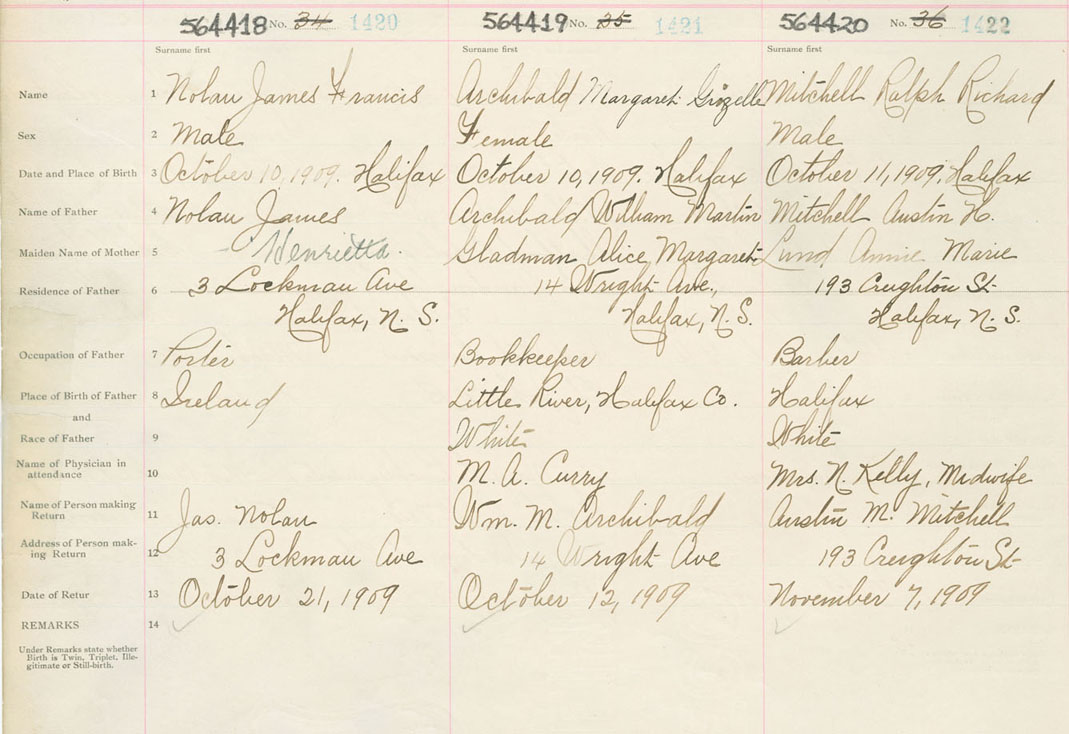 564418 No. 34 1420 564419 No. 35 1421 564420 No. 36 1422
Surname first Surname first Surname first
Name 1 Nolan James Francis Archibald Margaret Grozelle Mitchell Ralph Richard
Sex 2 Male Female Male
Date and Place of Birth 3 October 10, 1909. Halifax October 10, 1909. Halifax October 11, 1909, Halifax
Name of Father 4 Nolan James Archibald William Martin Mitchell Austin H.
Maiden Name of Mother 5 - Henrietta. Gladman Alice Margaret Lund Annie Marie
Residence of Father 6 3 Lockman Ave 14 Wright Ave., 193 Creighton St-
Halifax, N. S. Halifax, N. S. Halifax, N. S.
Occupation of Father 7 Porter Bookkeeper Barber
Place of Birth of Father 8 Ireland Little River, Halifax Co. Halifax
and
Race of Father 9 White White
Name of Physician in
attendance 10 M. A. Curry Mrs. N. Kelly, Midwife
Name of Person making
Return 11 Jas. Nolan Wm. M. Archibald Austin M. Mitchell
Address of Person mak-
ing Return 12 3 Lockman Ave 14 Wright Ave 193 Creighton St-
Date of Retur 13 October 21, 1909 October 12, 1909 November 7, 1909
REMARKS 14
Under Remarks state whether
Birth is Twin, Triplet, Ille-
gitimate or Still-birth.